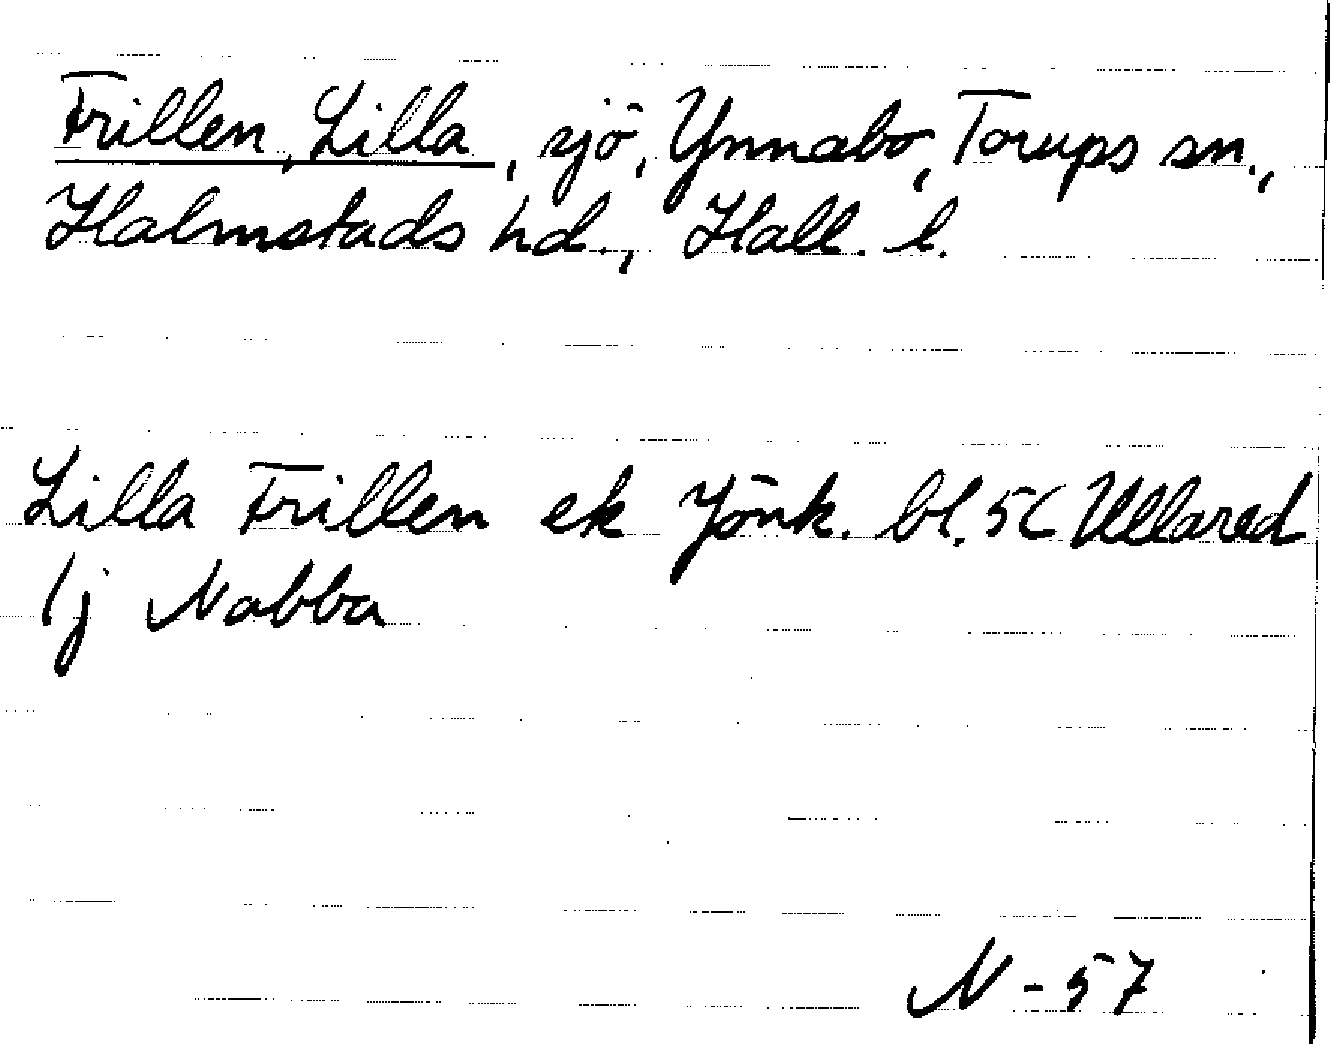 Frillen, Lilla, sjö, Ynnabo, Torups sn.,
Halmstads hd., Hall. l.
Lilla Frillen ek Jönk. bl. 5C Ullared
1j Nabba
N-57